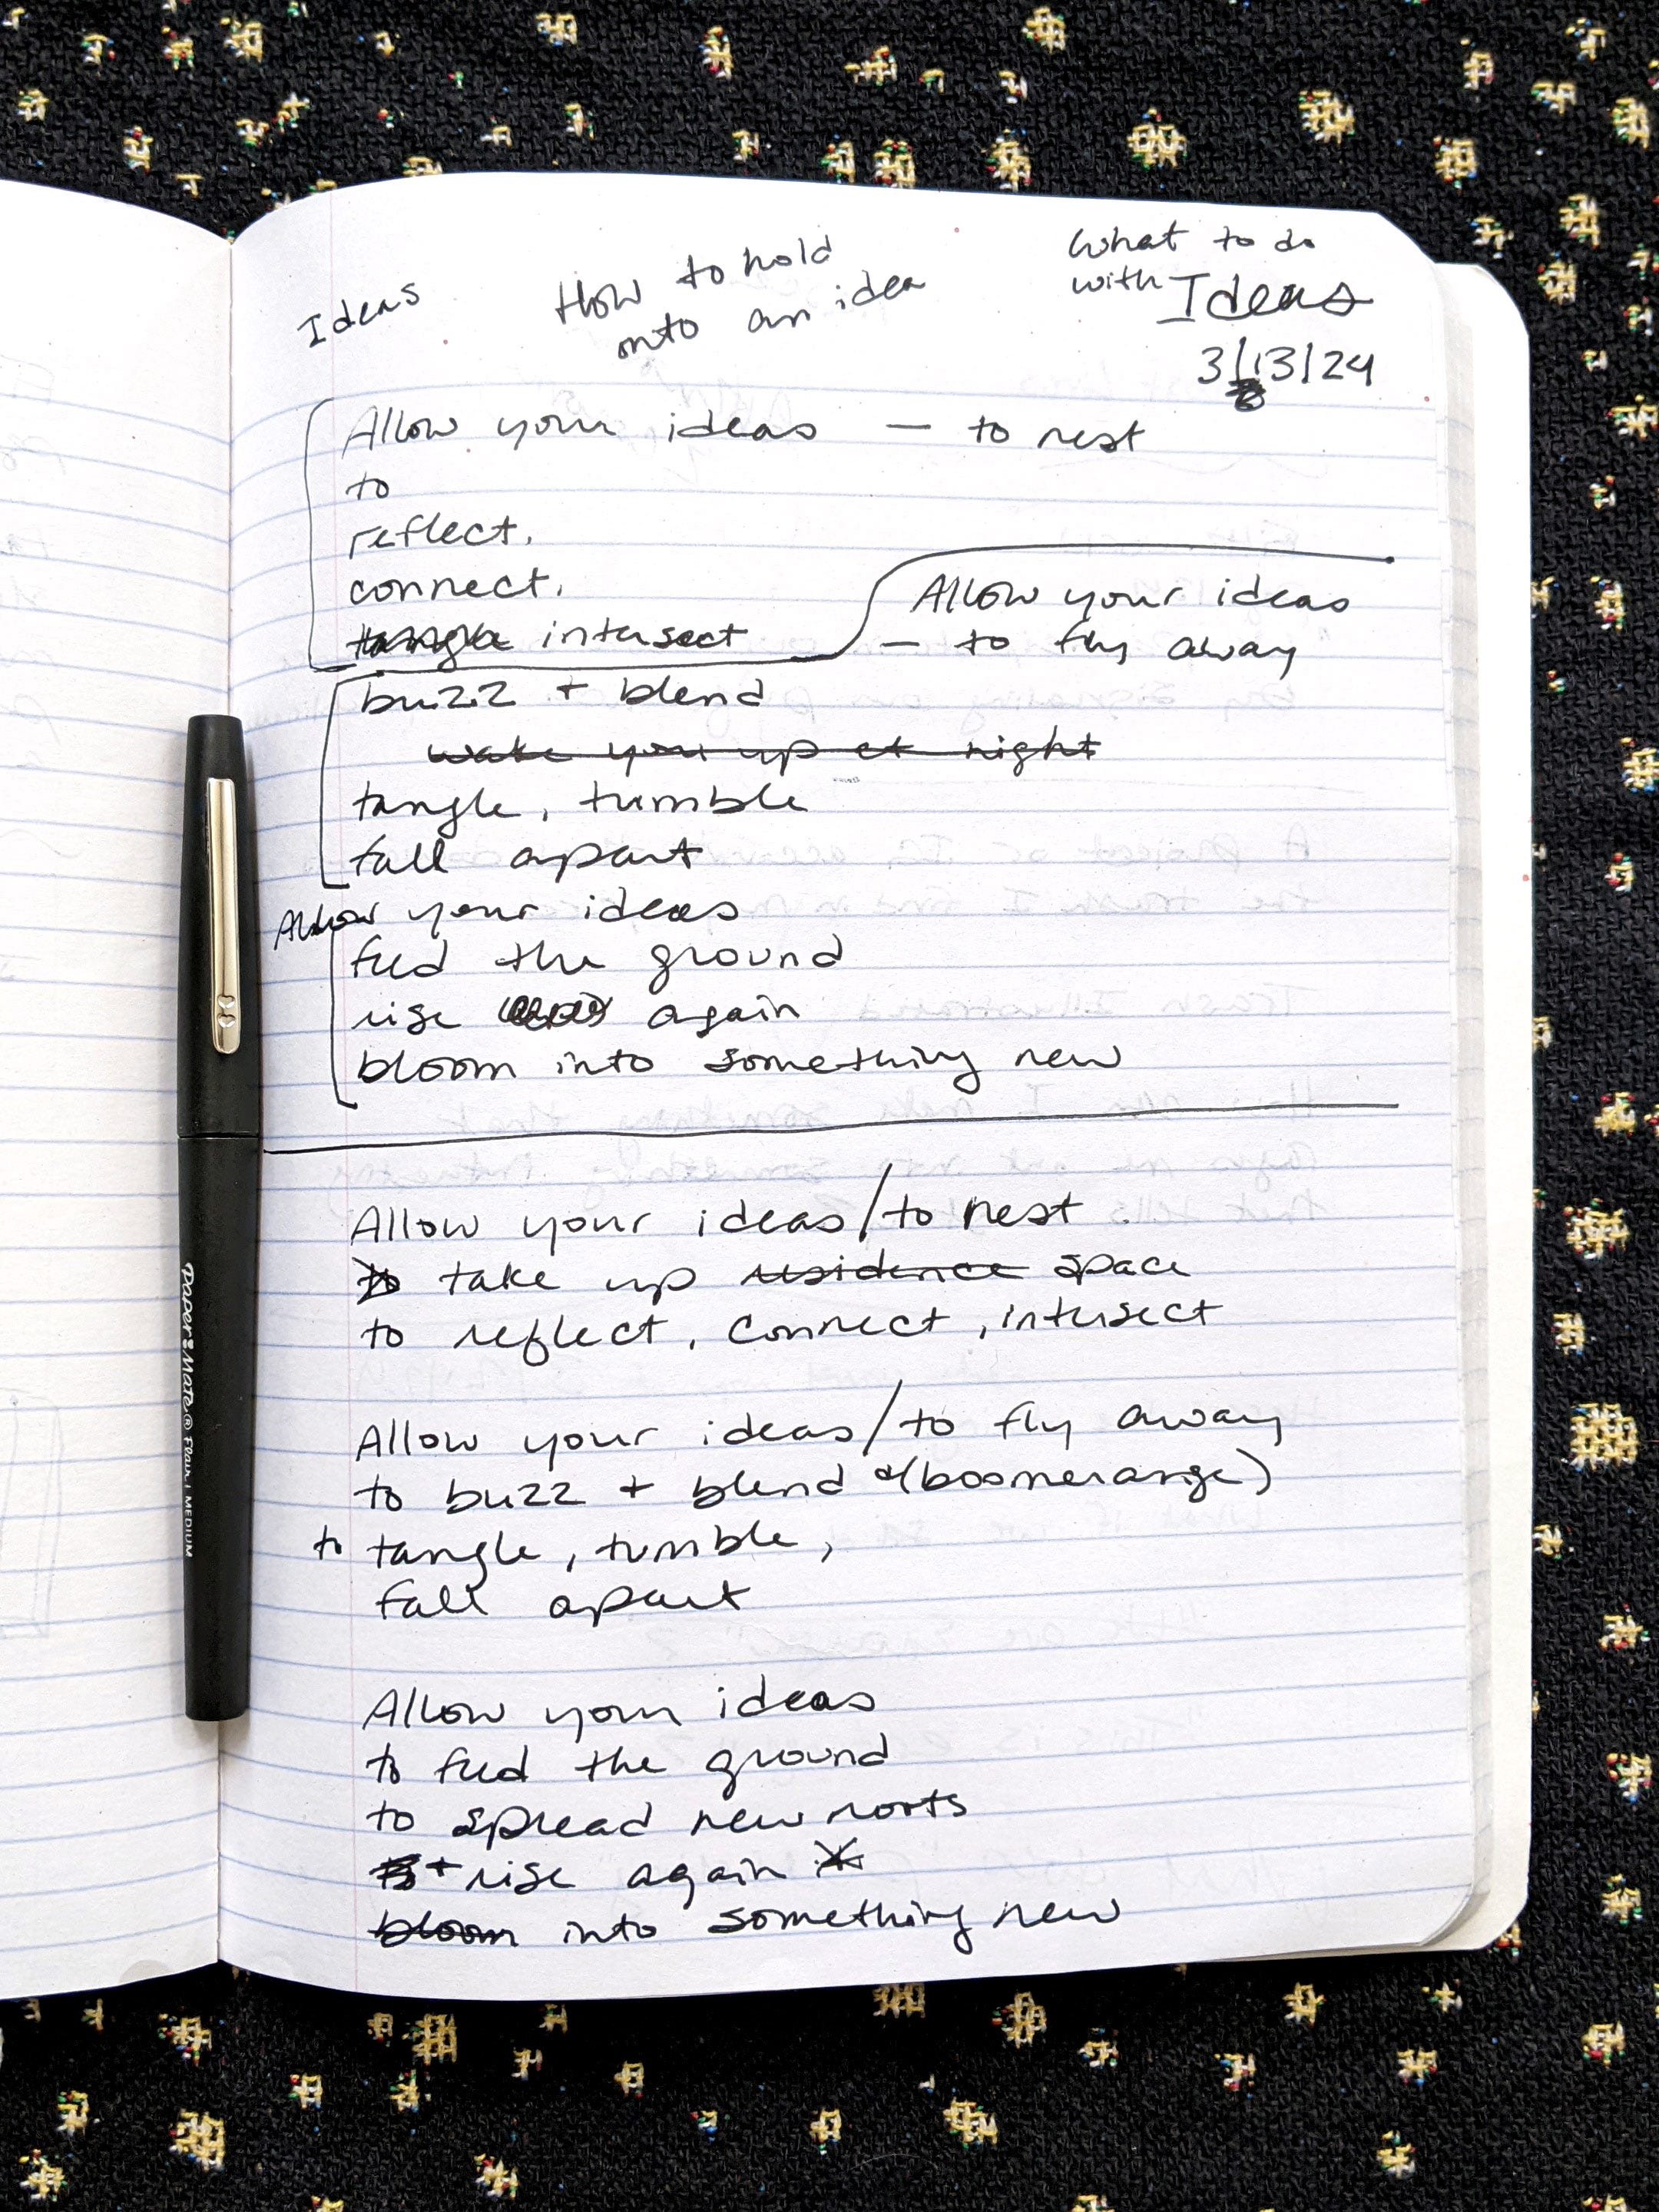 Ideas
How to hold
onto an idea
What to do
with Ideas
3/13/24
Allow your ideas — to rest
to
reflect.
connect.
tangle intersect
Allow your ideas
— to fly away
buzz + blend
wake you up at night
tangle, tumble
fall apart
Allow your ideas
feed the ground
rise again
bloom into something new
Allow your ideas / to rest
to take up residence space
to reflect, connect, intersect
Allow your ideas / to fly away
to buzz + blend (boomerange)
to tangle, tumble,
fall apart
Allow your ideas
to feed the ground
to spread new roots
+ rise again
bloom into something new
Paper:Mate® Flair | MEDIUM